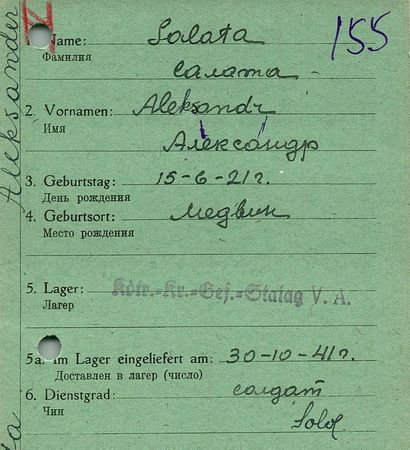 155
1. Name: Salata
Фамилия
Салата
2. Vornamen: Aleksandr
Имя
Александр
3. Geburtstag: 15-6-21г.
День рождения
4. Geburtsort: Медвин
Место рождения
5. Lager: Kdtr.-Kr.-Gef.-Stalag V. A.
Лагер
5a. Im Lager eingeliefert am: 30-10-41г.
Доставлен в лагер (число)
6. Dienstgrad: солдат
Чин
Sold
Aleksander